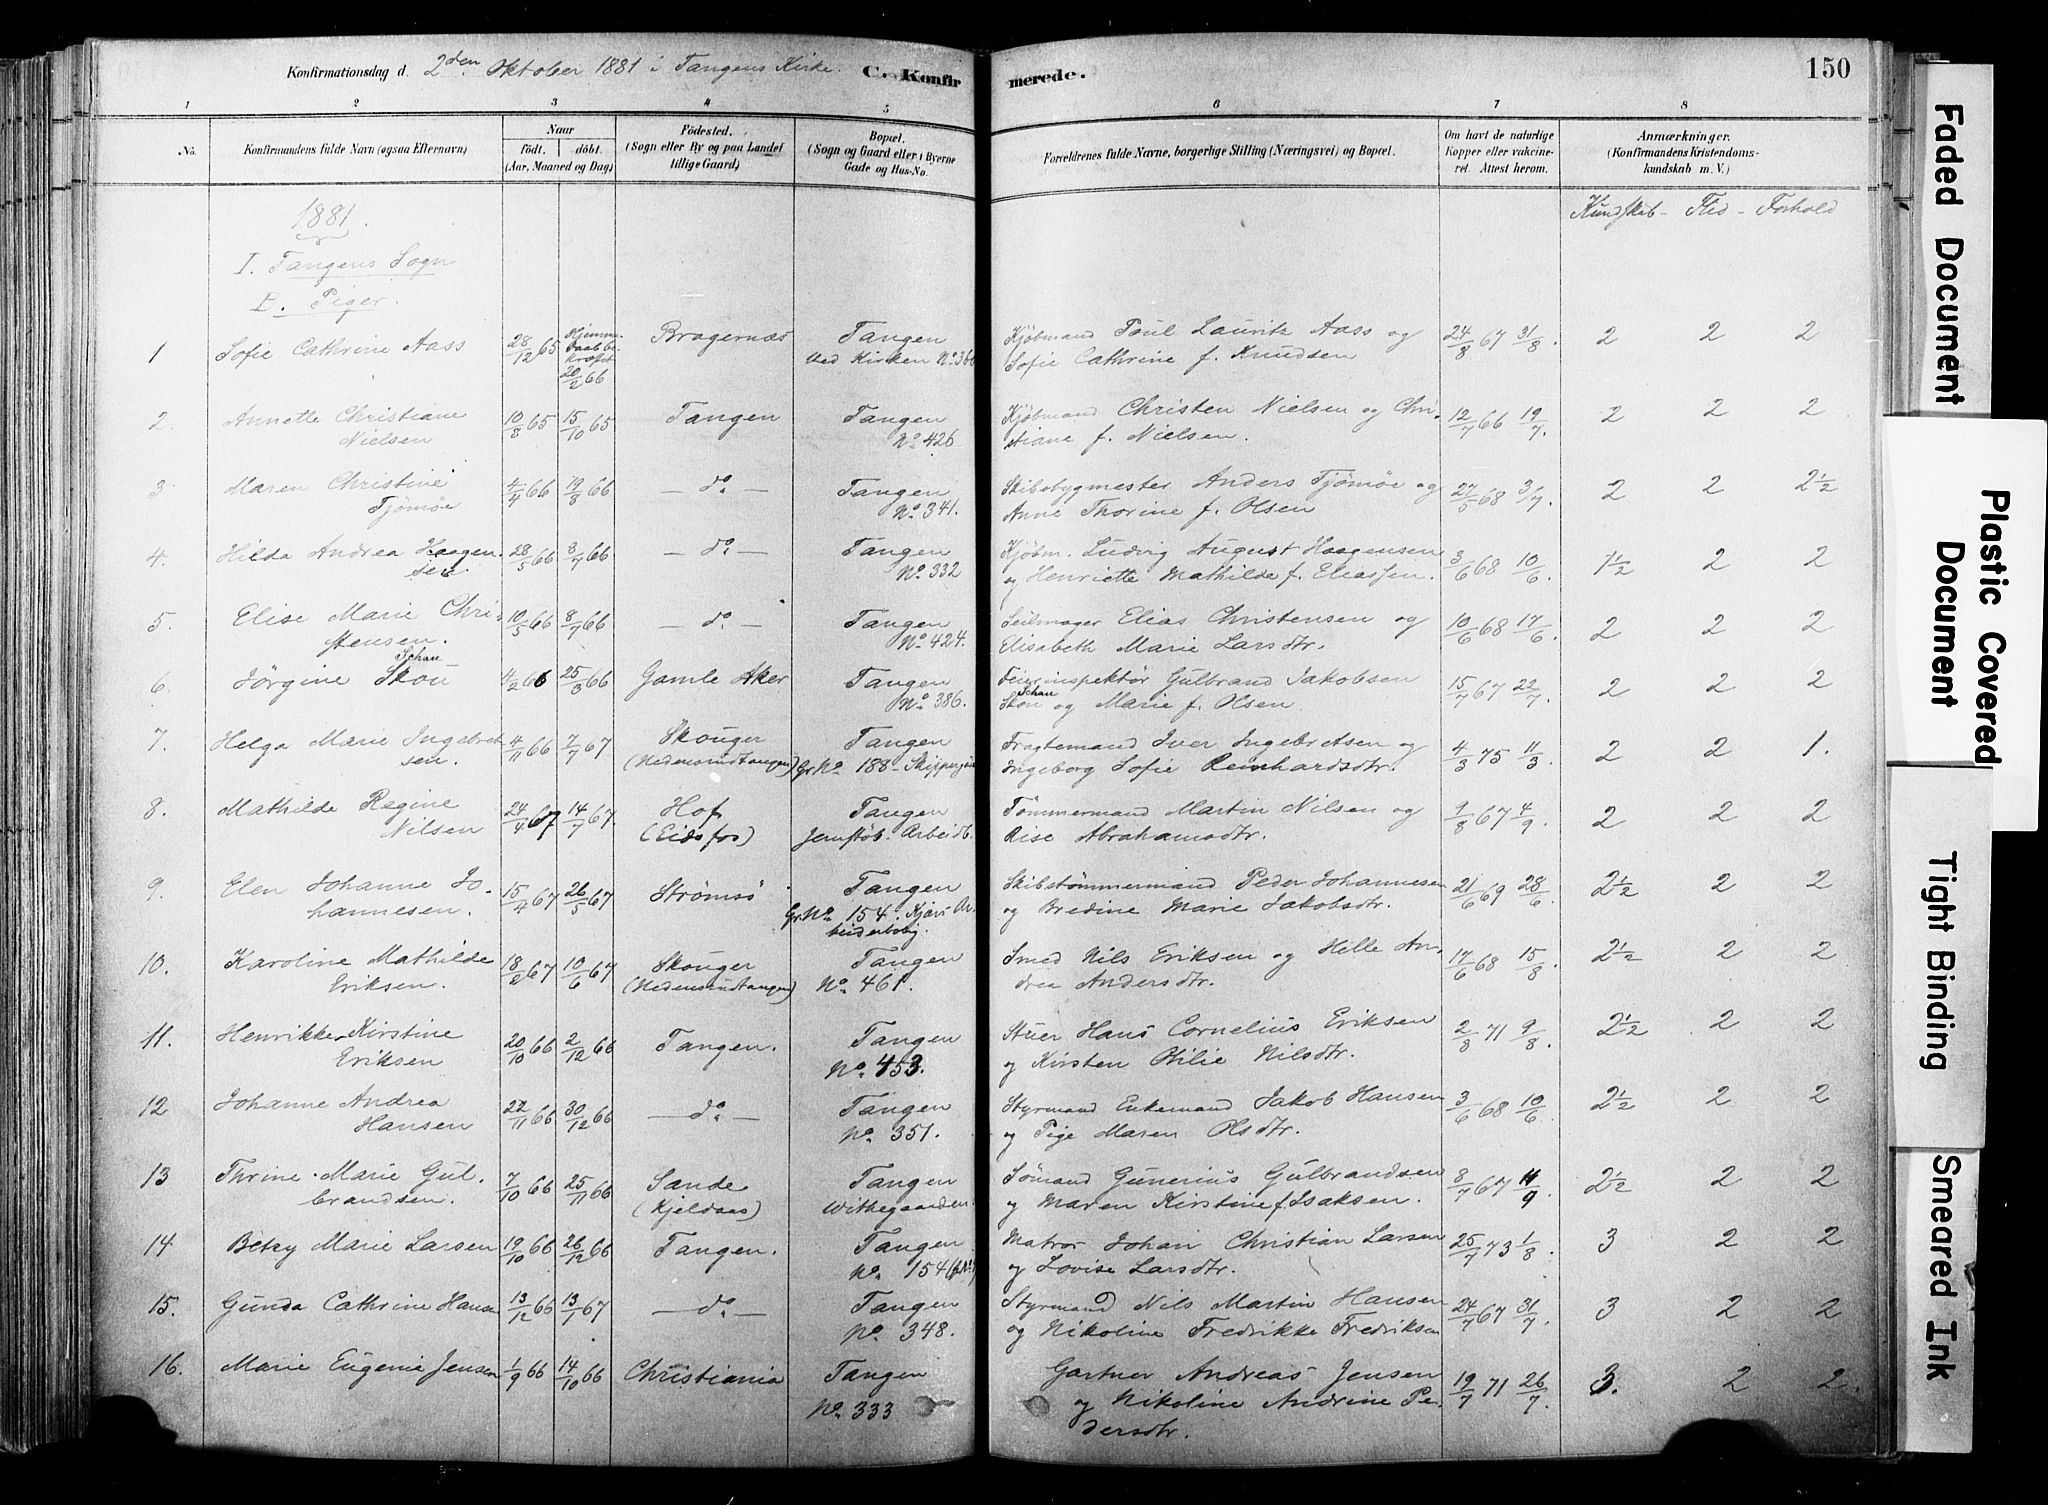 Konfirmationsdag d. 2den Oktober 1881 i Tangens Kirke. C. Konfir merede. 150
1 2 3 4 5 6 7 8
No. Konfirmandens fulde Navn (ogsaa Efternavn) Naar født. døbt. (Aar, Maaned og Dag) Födested. (Sogn eller By og paa Landet tillige Gaard) Bopæl. (Sogn og Gaard eller i Byerne Gade og Hus-No. Forældrenes fulde Navne, borgerlige Stilling (Næringsvei) og Bopæl. Om havt de naturlige Kopper eller vakcineret. Attest herom. Anmærkninger. (Konfirmandens Kristendomskundskab m. V.)
1881. Kundskab - Flid - Forhold
I. Tangens Sogn
B. Piger.
1 Sofie Cathrine Aass 28/12 65 Hjemmedaab bekræftet 20/2 66 Bragernæs Tangen ved Kirken No. 366 Kjøbmand Poul Lauritz Aass og 24/8 67 31/8. 2 2 2
Sofie Cathrine f. Knudsen
2. Annette Christiane 10/8 65 15/10 65 Tangen Tangen Kjøbmand Christen Nielsen og Chri- 12/7 66 19/7. 2 2 2
Nielsen No. 426 stiane f. Nielsen.
3 Maren Christine 4/4 66 19/8 66 — do. — Tangen Skibsbygmester Anders Tjömöe og 27/5 68 3/7. 2 2 2½
Tjömöe No. 341. Anne Thorine f. Olsen
4. Hilda Andrea Haagen- 28/5 66 8/7 66 — do. — Tangen Kjøbm. Ludvig August Haagensen 3/6 68 10/6. 1½ 2 2
sen. No. 332 og Henriette Mathilde f. Eliassen.
5. Elise Marie Chri- 10/5 66 8/7 66 — do. — Tangen Seilmager Elias Christensen og 10/6 68 17/6. 2 2 2
stensen. No. 424. Elisabeth Marie Larsdtr.
Schau
6. Jörgine Skou 4/2 66 25/3 66 Gamle Aker Tangen Feierinspektör Gulbrand Jakobsen 15/7 67 22/7. 2 2 2
No. 386. Schau
Skou og Marie f. Olsen
7. Helga Marie Ingebret- 4/11 66 7/7 67 Skouger Tangen Fragtemand Iver Ingebretsen og 4/3 75 11/3. 2 2 1.
sen. (Nedensundtangen) Gr No. 188 - Ingeborg Sofie Reinhardsdtr.
8. Mathilde Regine 24/4 67 14/7 67. Hof Tangen Tömmermand Martin Nilsen og 67 4/9 2 2 2
Nilsen (Eidsfos) Jernstöb. Arbeidb. Abrahamsdtr.
9. Elen Johanne Jo- 15/4 67 26/5 67 Strömsö Tangen Skibstømmermand Peder Johannesen 21/6 69 28/6. 2½ 2 2
hannesen. Gr No. 154. Kjærs Ar- og Bredine Marie Jakobsdtr.
beiderbolig.
10. Karoline Mathilde 18/2 67 10/6 67 Skouger Tangen Smed Nils Eriksen og Helle An- 17/6 68 15/8. 2½ 2 2
Eriksen. (Nedensundtangen) No. 461. drea Andersdtr.
11. Henrikke Kirstine 20/10 66 2/12 66 Tangen. Tangen Stuer Hans Cornelius Eriksen 2/8 71 9/8. 2½ 2 2
Eriksen No. 453. og Kirsten Othilie Nilsdtr.
12 Johanne Andrea 22/11 66 30/12 66 — do. — Tangen Styrmand Enkemand Jakob Hansen 3/6 68 10/6. 2½ 2 2
Hansen No. 351. og Pige Maren Olsdtr.
13 Thrine Marie Gul- 7/10 66 25/11 66 Sande Tangen Sömand Gunerius Gulbrandsen 8/7 67 11/9. 2½ 2 2
brandsen. (Kjeldaas) Withegaarden og Maren Kirstine f. Isaksen.
14 Betzy Marie Larsen 19/10 66 26/12 66 Tangen. Tangen Matros Johan Christian Larsen 25/7 73 1/8. 3 2 2
No. 154 og Lovise Larsdtr.
15. Gunda Cathrine Hansen 13/12 66 13/1 67 — do. — Tangen Styrmand Nils Martin Hansen 24/7 67 31/7. 3 2 2
No. 348. og Nikoline Fredrikke Fredriksen
16. Marie Eugenie Jensen 1/9 66 14/10 66 Christiania Tangen Gartner Andreas Jensen 19/7 71 26/7. 3. 2 2.
No. 333 og Nikoline Andrine Pe-
dersdtr.
Faded Document
Plastic Covered Document
Tight Binding
Smeared Ink